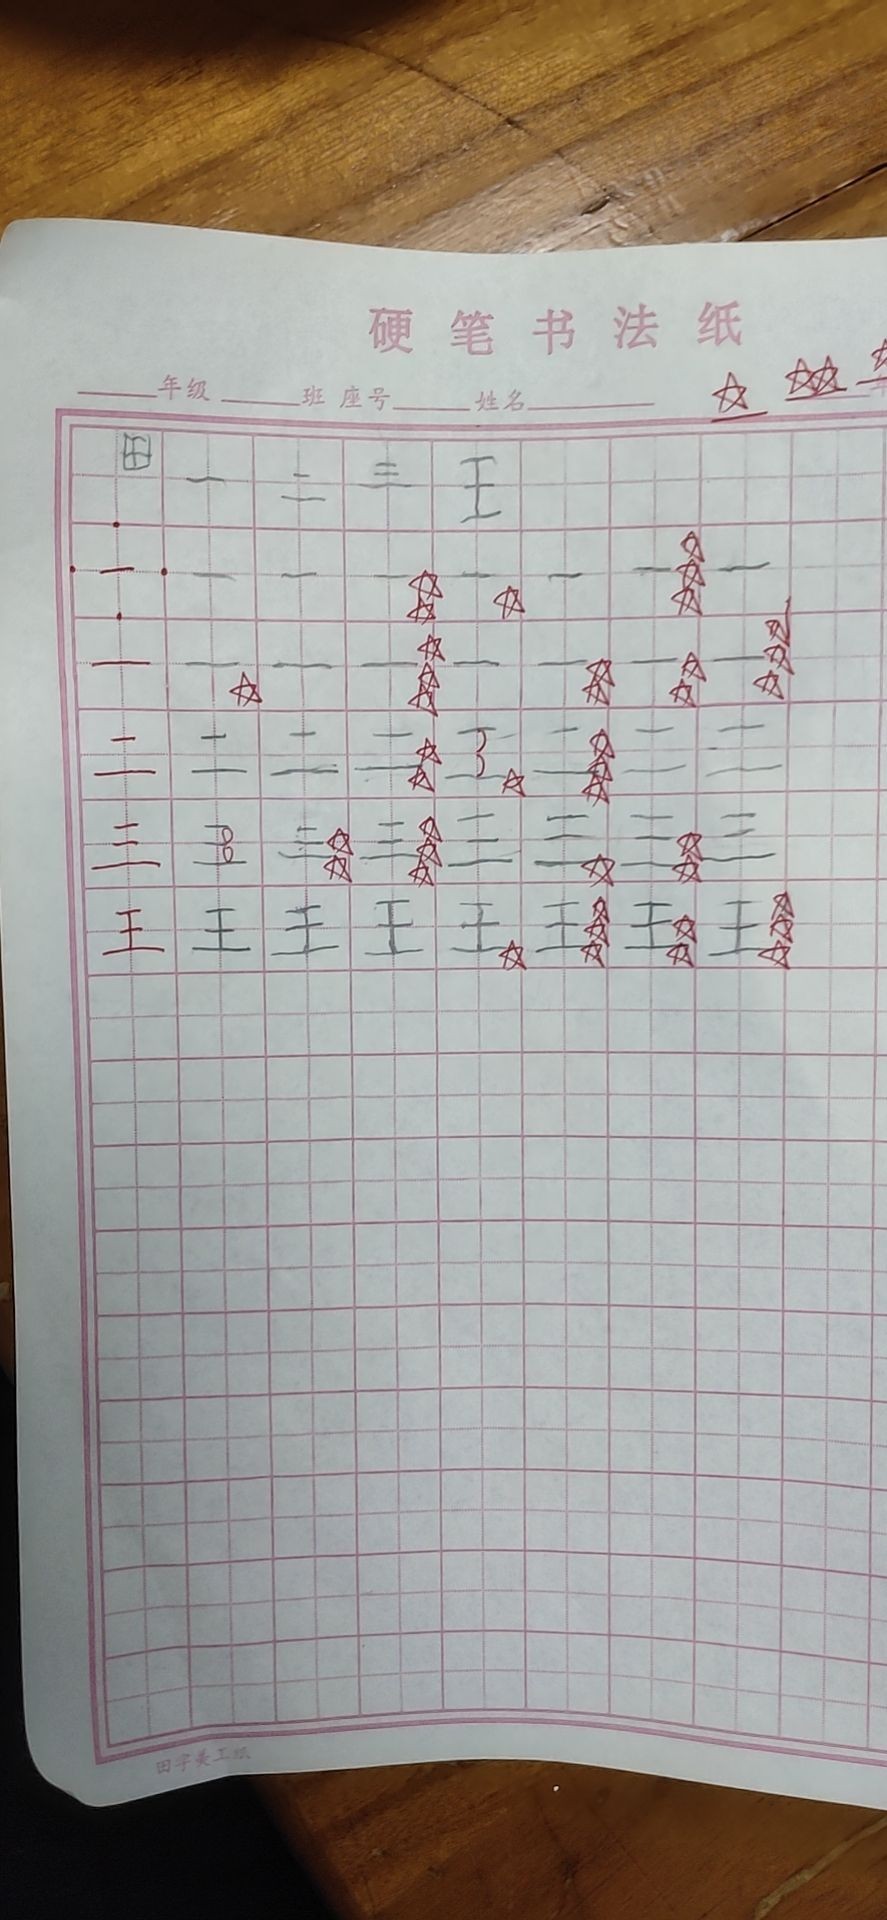 硬笔书法纸
年级 班 座号 姓名
田 一 二 三 王
一 一 一 一 一 一 一 一
一 一 一 一 一 一 一 一
二 二 二 二 二 二 二 二
三 三 三 三 三 三 三 三
王 王 王 王 王 王 王 王
田字美工纸